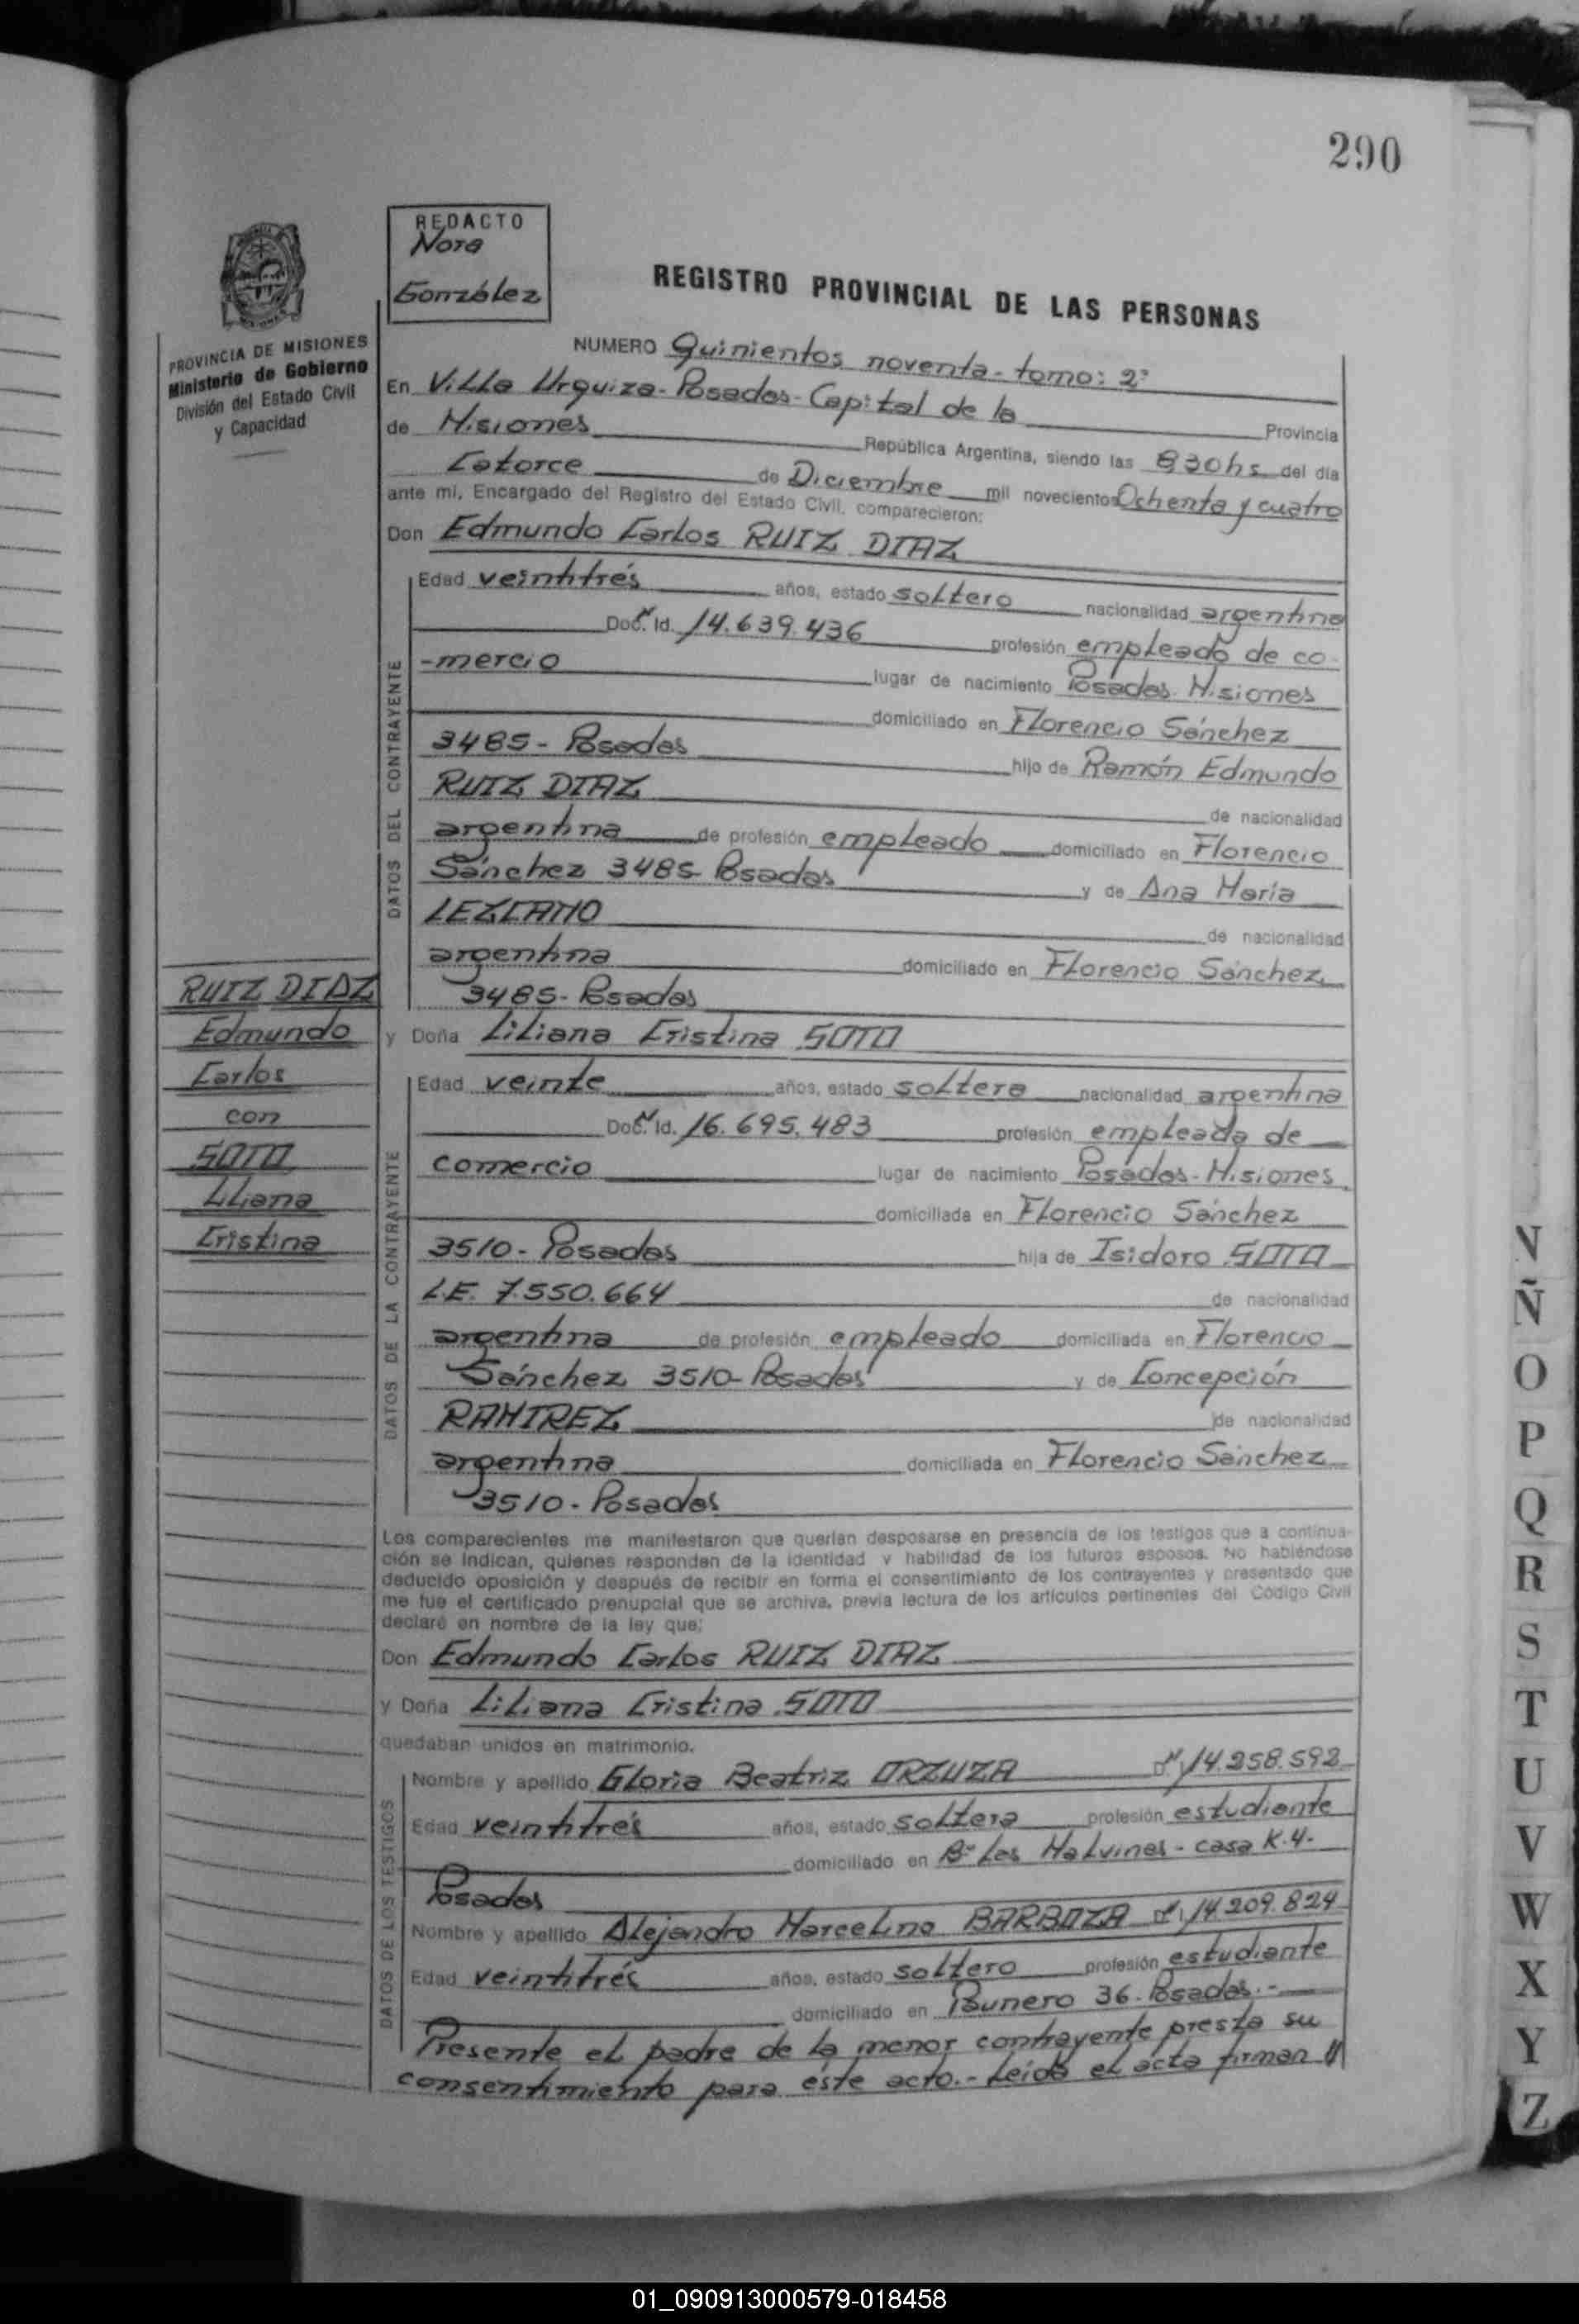 290
REDACTO
Nora
González
REGISTRO PROVINCIAL DE LAS PERSONAS
PROVINCIA DE MISIONES
Ministerio de Gobierno
División del Estado Civil
y Capacidad
NUMERO Quinientos noventa - tomo: 2º
En Villa Urquiza - Posadas - Capital de la Provincia
de Misiones República Argentina, siendo las 8 30 hs del día
Catorce de Diciembre mil novecientos Ochenta y cuatro
ante mi, Encargado del Registro del Estado Civil, comparecieron:
Don Edmundo Carlos RUIZ DIAZ
Edad veintitrés años, estado soltero nacionalidad argentina
Doc. Id. Nº 14.639.436 profesión empleado de co-
-mercio lugar de nacimiento Posadas Misiones
domiciliado en Florencio Sánchez
3485 - Posadas hijo de Ramón Edmundo
RUIZ DIAZ de nacionalidad
argentina de profesión empleado domiciliado en Florencio
Sánchez 3485 - Posadas y de Ana María
LEZCANO de nacionalidad
argentina domiciliado en Florencio Sánchez
3485 - Posadas
y Doña Liliana Cristina SOTO
Edad veinte años, estado soltera nacionalidad argentina
Doc. Id. Nº 16.695.483 profesión empleada de
comercio lugar de nacimiento Posadas - Misiones
domiciliada en Florencio Sánchez
3510 - Posadas hija de Isidoro SOTO
L.E. 7.550.664 de nacionalidad
argentina de profesión empleado domiciliada en Florencio
Sánchez 3510 - Posadas y de Concepción
RAMIREZ de nacionalidad
argentina domiciliada en Florencio Sánchez
3510 - Posadas
DATOS DEL CONTRAYENTE
DATOS DE LA CONTRAYENTE
RUIZ DIAZ
Edmundo
Carlos
con
SOTO
Liliana
Cristina
Los comparecientes me manifestaron que querían desposarse en presencia de los testigos que a continua-
ción se indican, quienes responden de la identidad y habilidad de los futuros esposos. No habiéndose
deducido oposición y después de recibir en forma el consentimiento de los contrayentes y presentado que
me fue el certificado prenupcial que se archiva, previa lectura de los artículos pertinentes del Código Civil
declaré en nombre de la ley que:
Don Edmundo Carlos RUIZ DIAZ
y Doña Liliana Cristina SOTO
quedaban unidos en matrimonio.
Nombre y apellido Gloria Beatriz ORZUZA 14.258.592
Edad veintitrés años, estado soltera profesión estudiante
domiciliado en Bº Las Malvinas - casa K.4.
Posadas
Nombre y apellido Alejandro Marcelino BARBOZA 14.209.824
Edad veintitrés años, estado soltero profesión estudiante
domiciliado en Bunero 36 - Posadas.-
DATOS DE LOS TESTIGOS
Presente el padre de la menor contrayente presta su
consentimiento para éste acto.- Leída el acta firman //
N
Ñ
O
P
Q
R
S
T
U
V
W
X
Y
Z
01_090913000579-018458